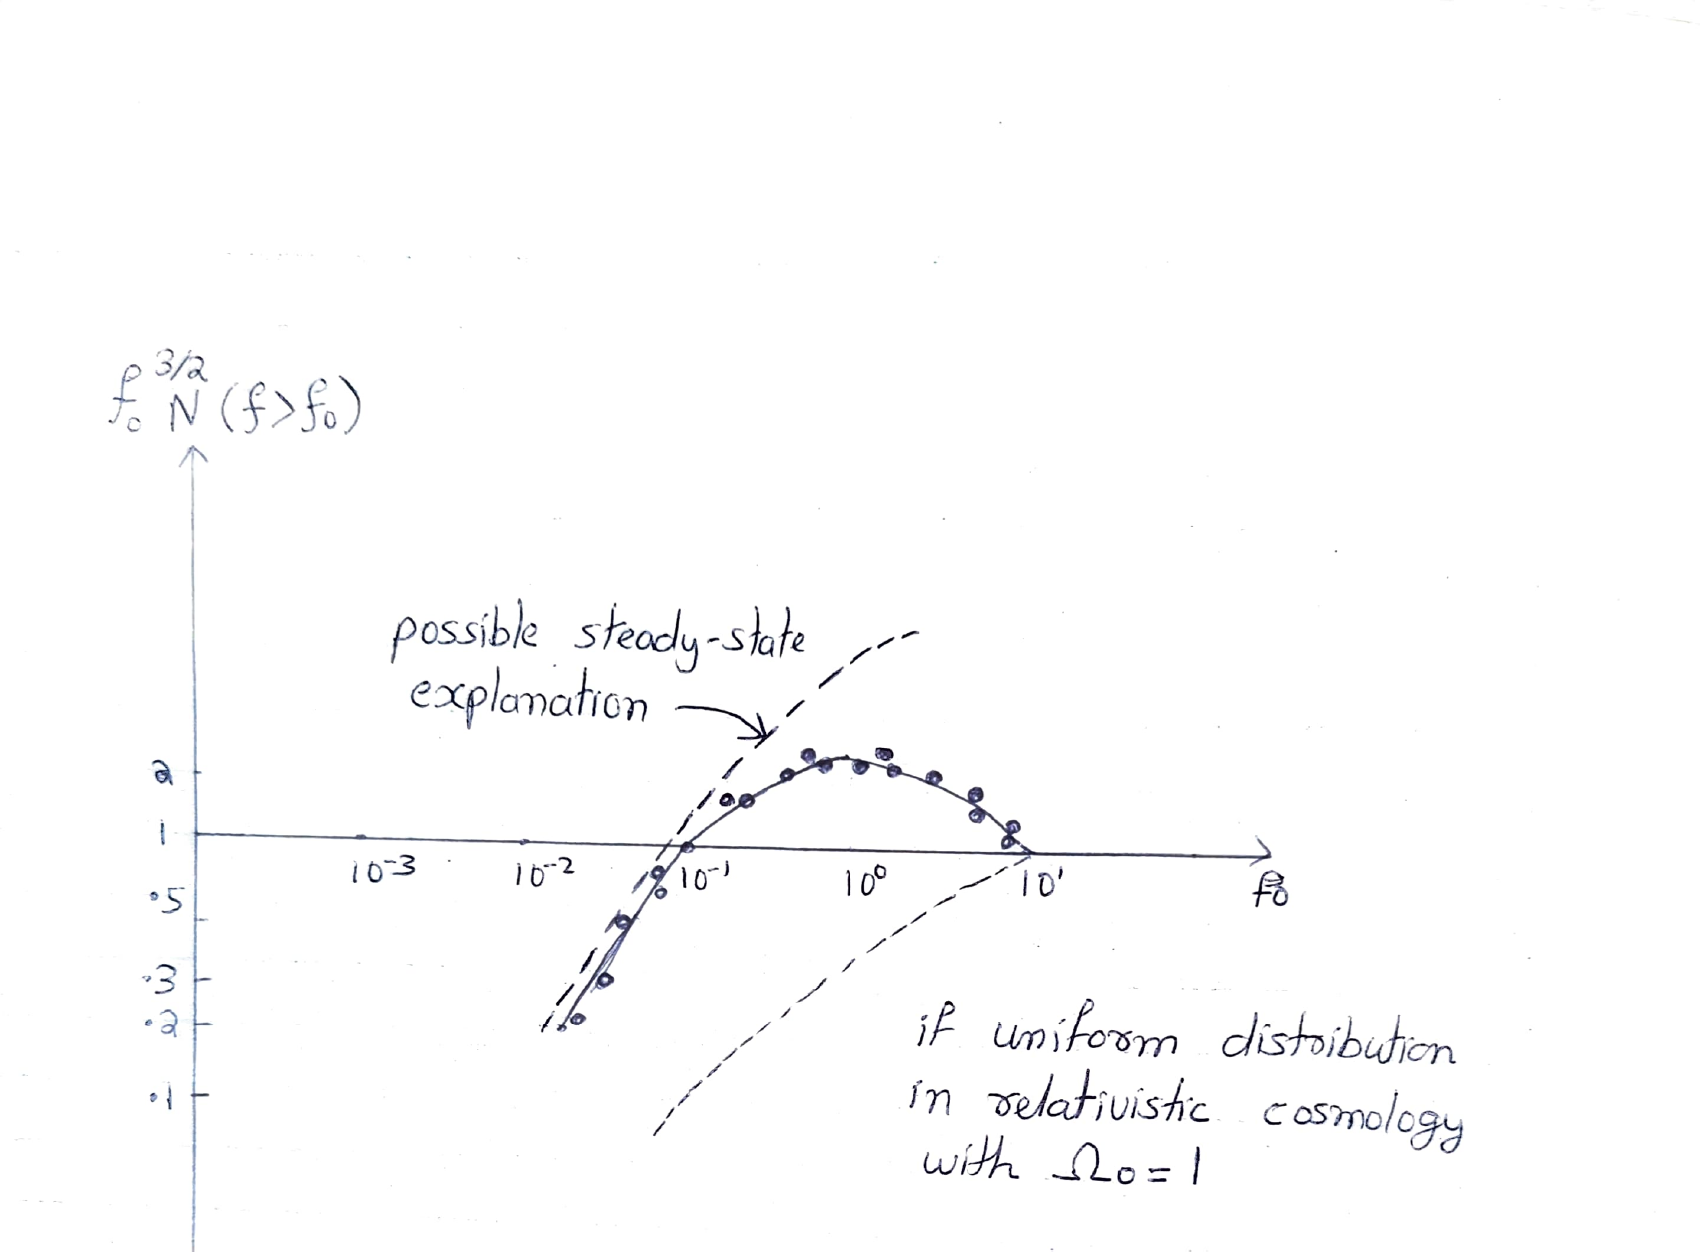 f₀^3/2 N (f>f₀)
possible steady-state
explanation
2
1
.5
.3
.2
.1
10⁻³
10⁻²
10⁻¹
10⁰
10¹
f₀
if uniform distribution
in relativistic cosmology
with Ω₀=1